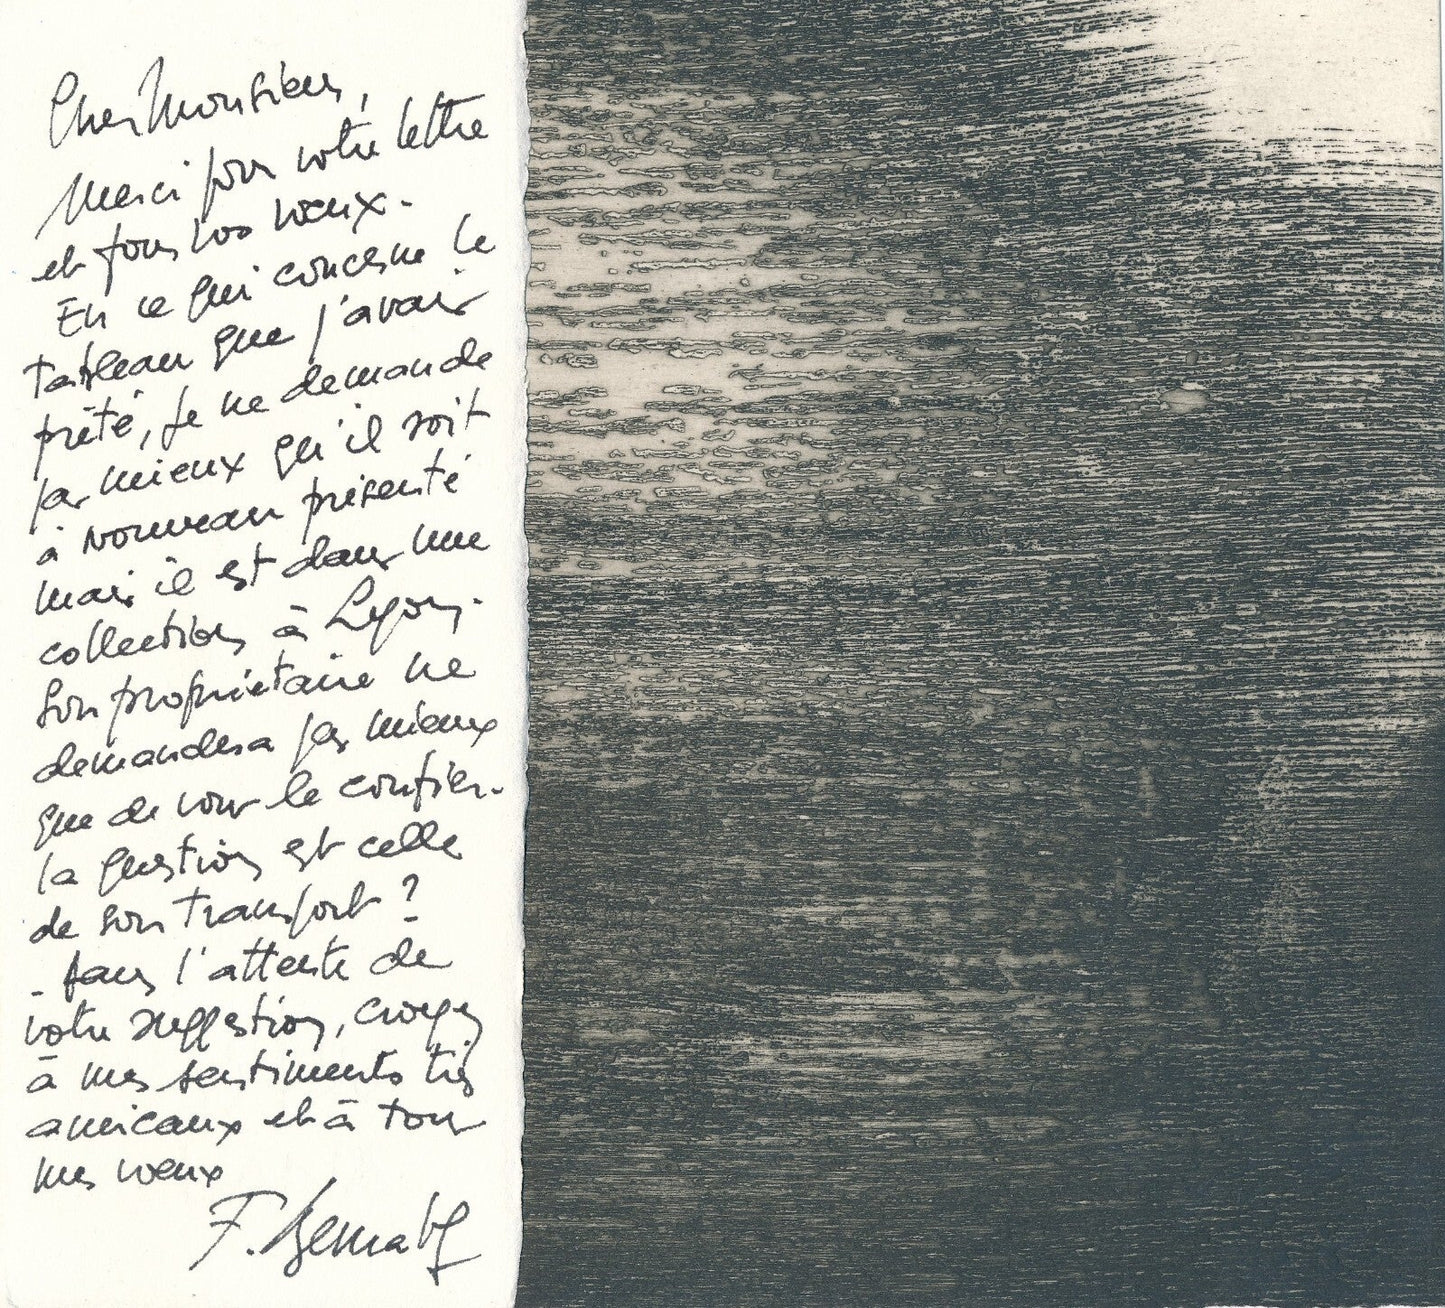 Cher Monsieur,
Merci pour votre lettre
et tous vos voeux.
En ce qui concerne le
tableau que j'avais
prêté, je ne demande
pas mieux qu'il soit
à nouveau présenté
mais il est dans une
collection à Lyon.
Son propriétaire ne
demandera pas mieux
que de vous le confier.
la question est celle
de son transport ?
- Dans l'attente de
votre suggestion, croyez
à mes sentiments très
amicaux et à tous
mes voeux
F.